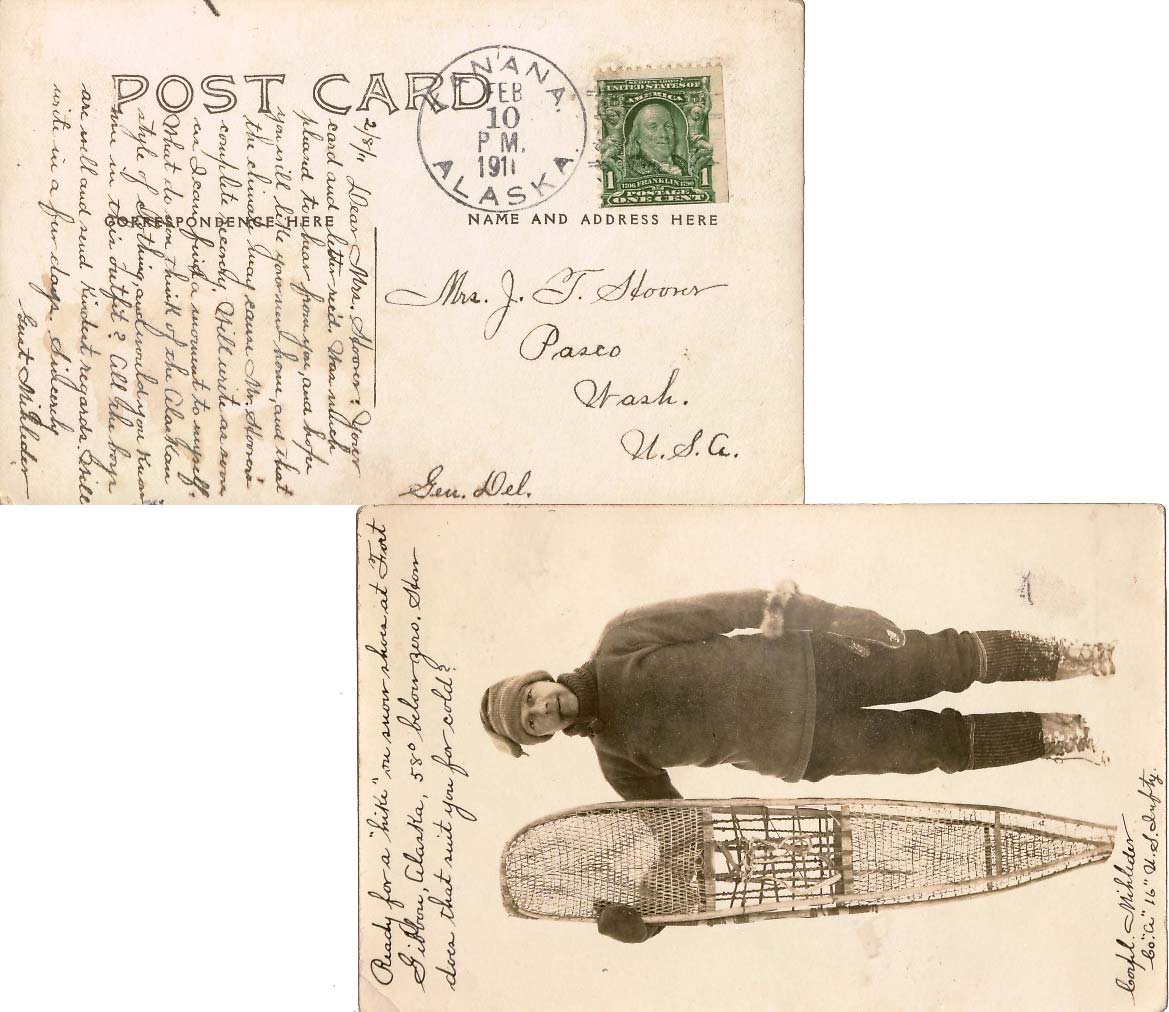 POST CARD
TENANA.
FEB
10
P M.
1911
ALASKA.
SERIES 1902
UNITED STATES OF
AMERICA
1 1
1706 FRANKLIN 1790
POSTAGE
ONE CENT
CORRESPONDENCE HERE
NAME AND ADDRESS HERE
2/8/11 Dear Mrs. Stoover: Your
card and letter rec'd. Was much
pleased to hear from you, and hope
you will like your new home, and that
the climate may cause Mr. Stoover's
complete recovery. Will write as soon
as I can find a moment to myself.
What do you think of the Alaskan
style of clothing, and would you know
me in this outfit? All the boys
are well and send kindest regards. Will
write in a few days. Sincerely
Gust Mihleder
Mrs. J. T. Stoover
Pasco
Wash.
U. S. A.
Gen. Del.
Ready for a "hike" on snow shoes at Fort
Gibbon, Alaska, 58° below zero. How
does that suit you for cold?
Corpl. Mihleder
Co. "A" 16" U. S. Infty.